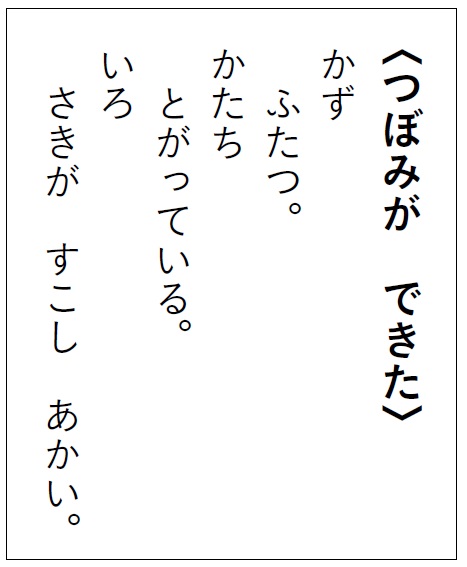 〈つぼみが　できた〉
かず
　ふたつ。
かたち
　とがっている。
いろ
　さきが　すこし　あかい。